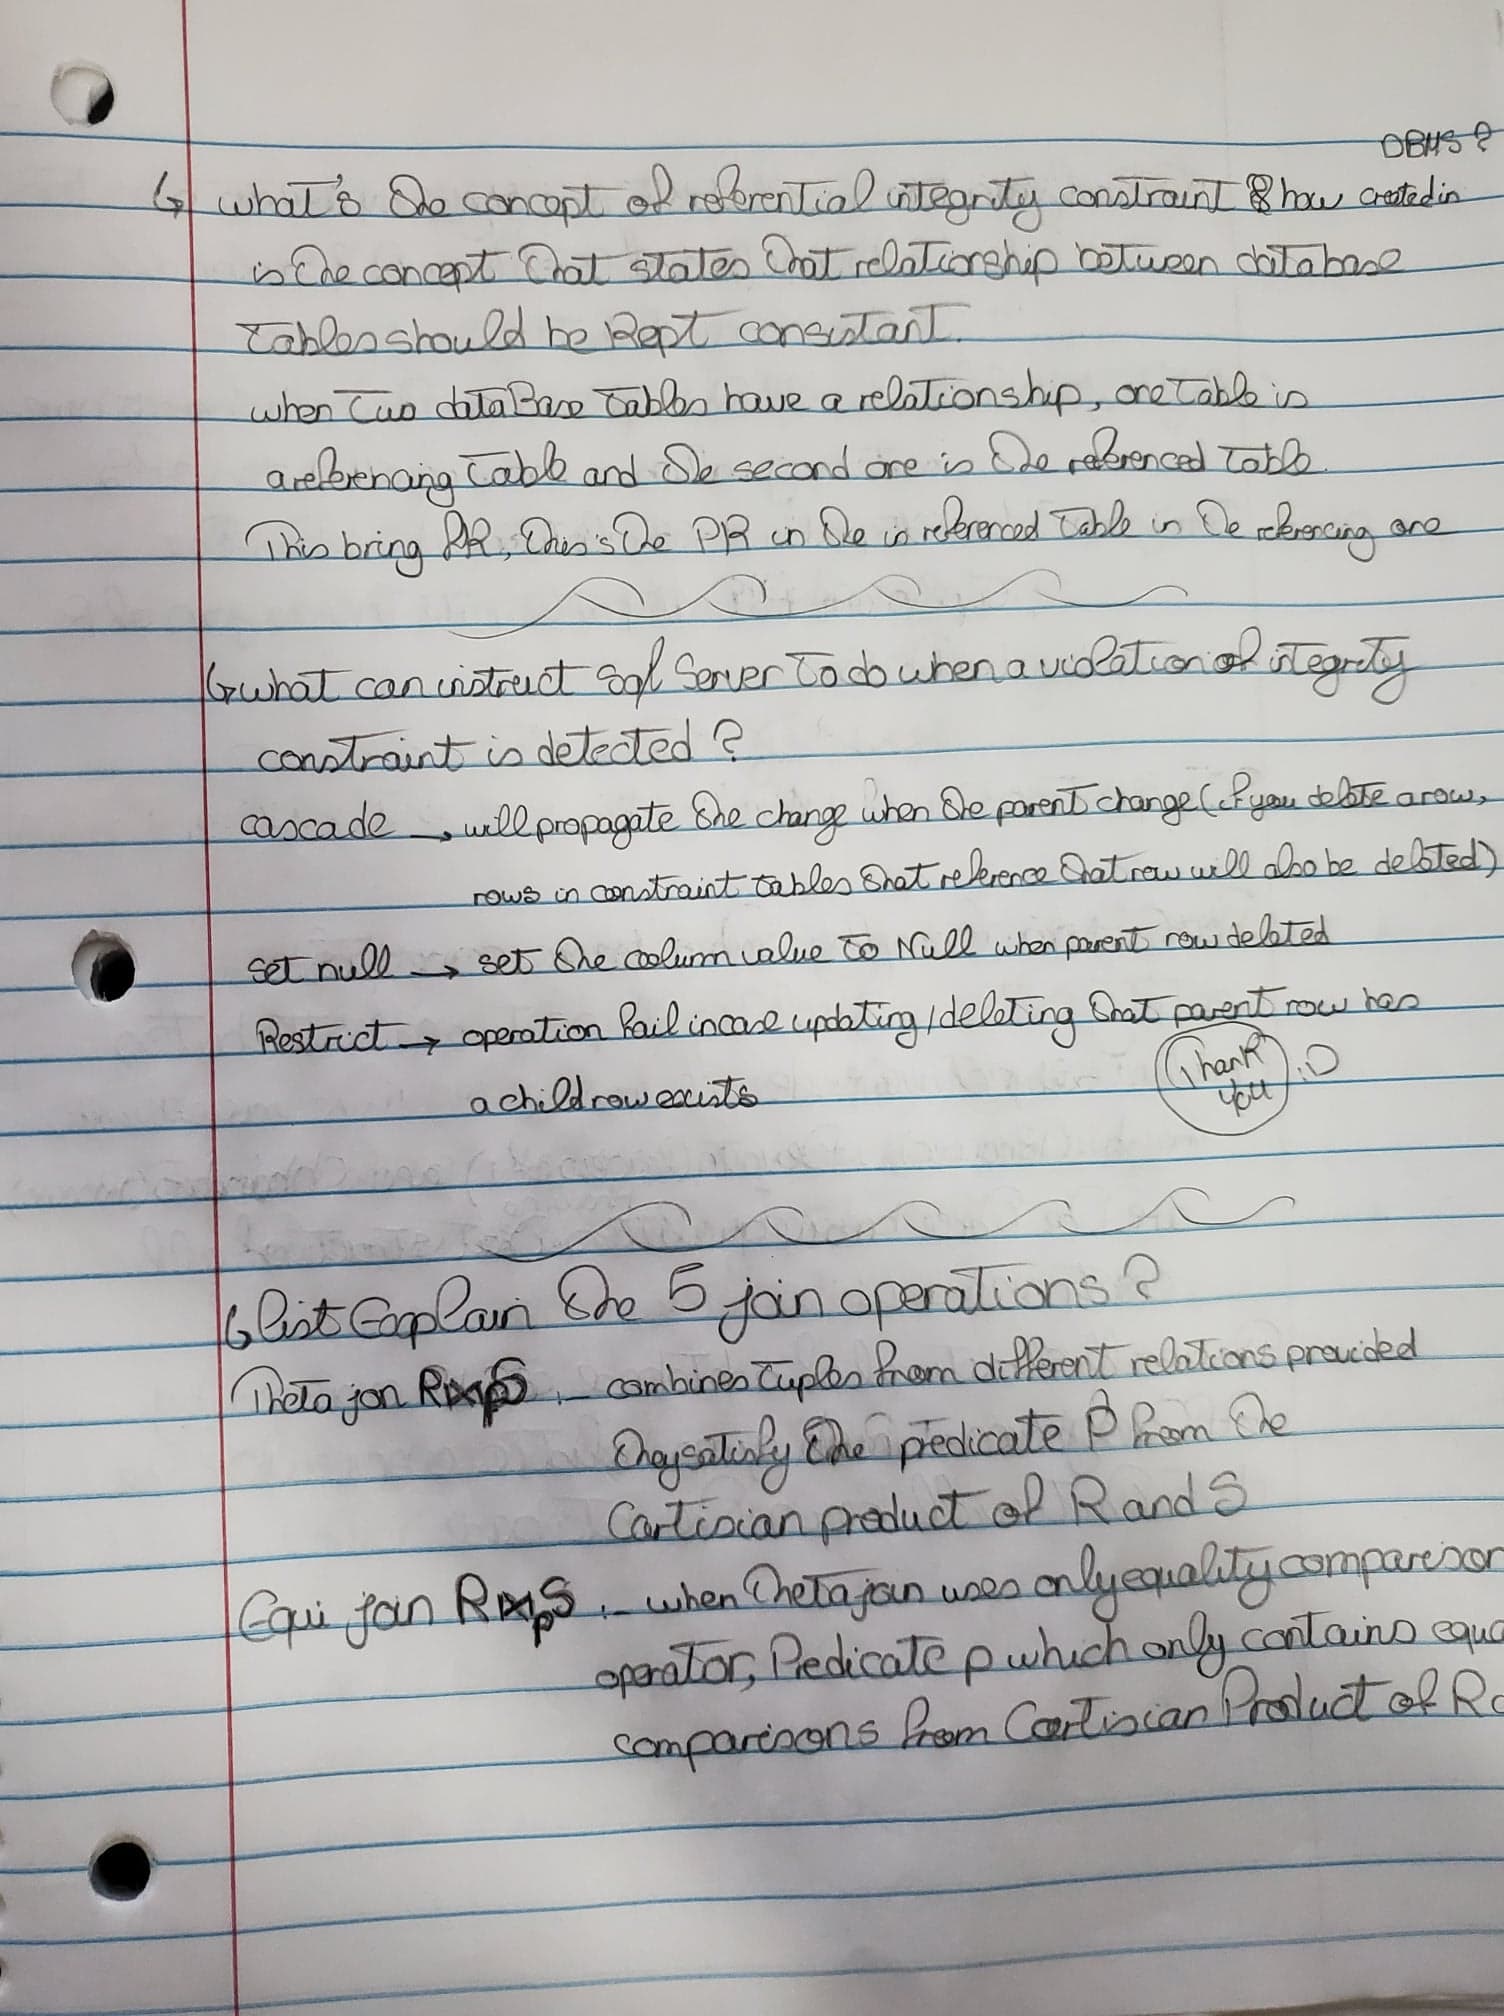 DBMS?
what's the concept of referential integrity constraint & how created in
is the concept that states that relationship between database
tables should be kept consistant.
when two dataBase tables have a relationship, one table is
a referencing table and the second one is the referenced table.
This bring FK, this's the PK in the in referenced table in the referencing one
what can instruct sql Server to do when a violation of integrety
constraint is detected?
cascade → will propagate the change when the parent change (if you delete a row,
rows in constraint tables that reference that row will also be deleted)
set null → set the coolumn value to Null when parent row deleted
Restrict → operation fail in case updating/deleting that parent row has
a child row exists
Thank you :D
list Explain the 5 join operations?
Theta jon R⋈pS :- combines tuples from different relations provided
they satisfy the predicate P from the
Cartisian product of R and S
Equi join R⋈pS :- when Theta join uses only equality comparison
operator, Predicate p which only contains equa
comparisons from Cartisian Product of R